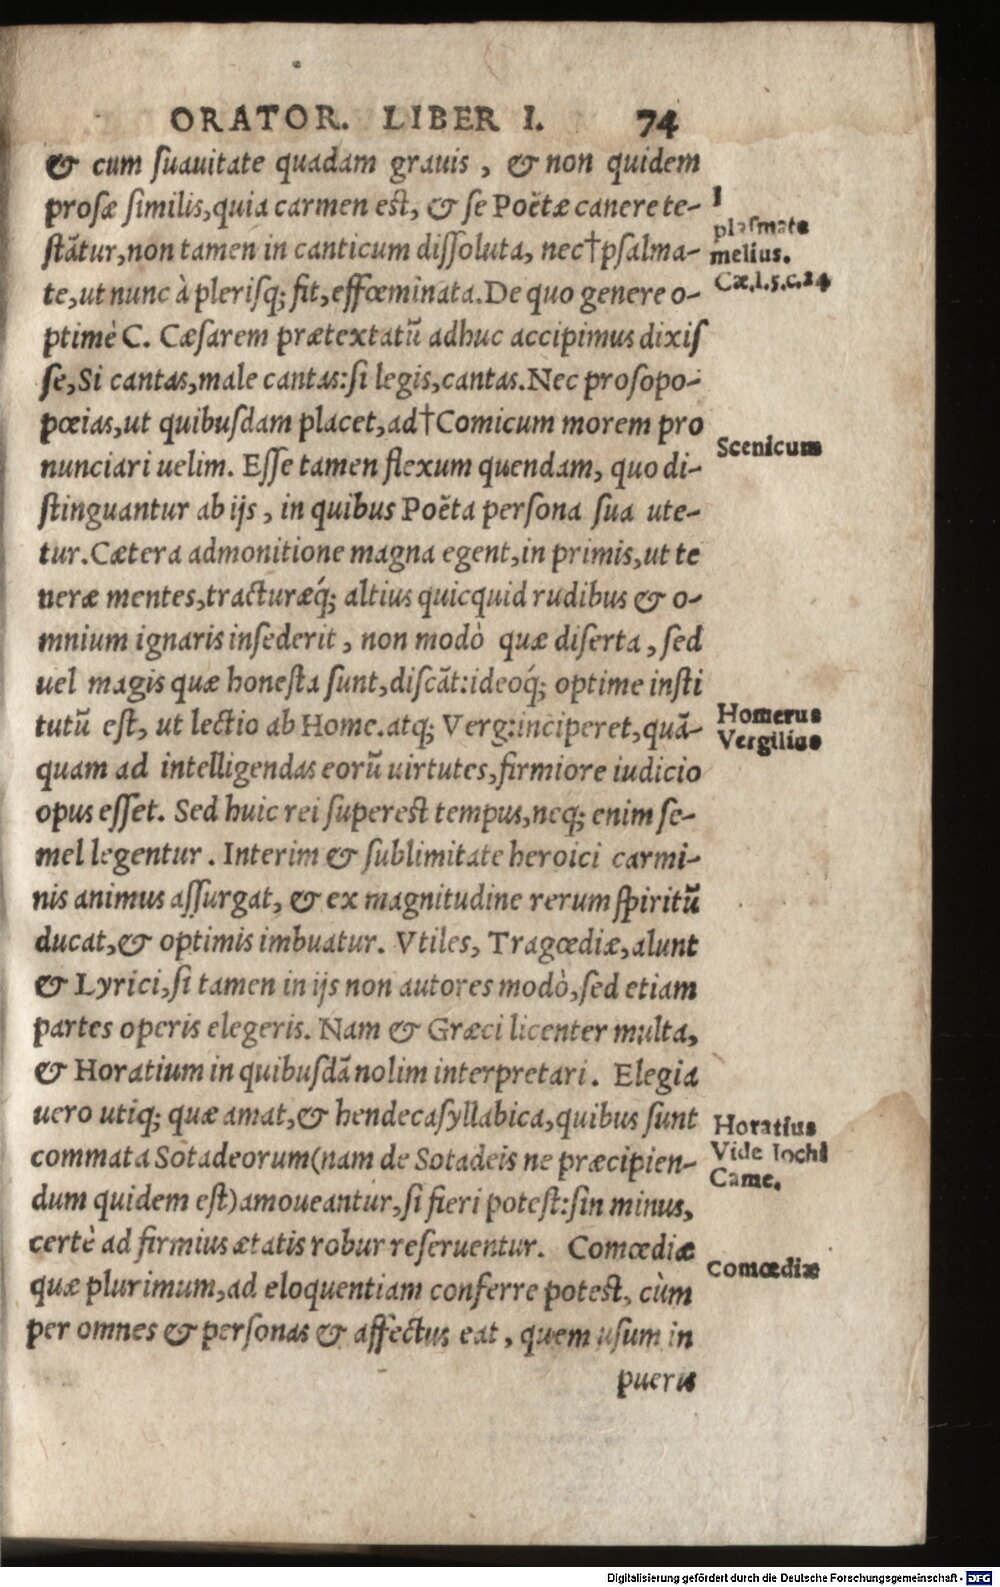 ORATOR. LIBER I. 74
& cum ſuauitate quadam grauis, & non quidem
proſæ ſimilis, quia carmen eſt, & ſe Poëtæ canere te-
ſtãtur, non tamen in canticum diſſoluta, nec † pſalma-
te, ut nunc à pleriſq; fit, effœminata. De quo genere o-
ptimè C. Cæſarem prætextatũ adhuc accipimus dixiſ
ſe, Si cantas, male cantas: ſi legis, cantas. Nec proſopo-
pœias, ut quibuſdam placet, ad † Comicum morem pro
nunciari uelim. Eſſe tamen flexum quendam, quo di-
ſtinguantur ab ijs, in quibus Poëta perſona ſua ute-
tur. Cætera admonitione magna egent, in primis, ut te
neræ mentes, tracturæq́; altius quicquid rudibus & o-
mnium ignaris inſederit, non modò quæ diſerta, ſed
uel magis quæ honeſta ſunt, diſcãt: ideoq́; optime inſti
tutũ eſt, ut lectio ab Home. atq; Verg: inciperet, quã-
quam ad intelligendas eorũ uirtutes, firmiore iudicio
opus eſſet. Sed huic rei ſupereſt tempus, neq; enim ſe-
mel legentur. Interim & ſublimitate heroici carmi-
nis animus aſſurgat, & ex magnitudine rerum ſpiritũ
ducat, & optimis imbuatur. Vtiles, Tragœdiæ, alunt
& Lyrici, ſi tamen in ijs non autores modò, ſed etiam
partes operis elegeris. Nam & Græci licenter multa,
& Horatium in quibuſdã nolim interpretari. Elegia
uero utiq; quæ amat, & hendecaſyllabica, quibus ſunt
commata Sotadeorum (nam de Sotadeis ne præcipien-
dum quidem eſt) amoueantur, ſi fieri poteſt: ſin minus,
certè ad firmius ætatis robur reſeruentur. Comœdiæ
quæ plurimum, ad eloquentiam conferre poteſt, cùm
per omnes & perſonas & affectus eat, quem uſum in
pueris
1
plaſmate
melius.
Cæ.l.5.c.24
Scenicum
Homerus
Vergilius
Horatius
Vide Iochi
Came.
Comœdiæ
Digitalisierung gefördert durch die Deutsche Forschungsgemeinschaft - DFG